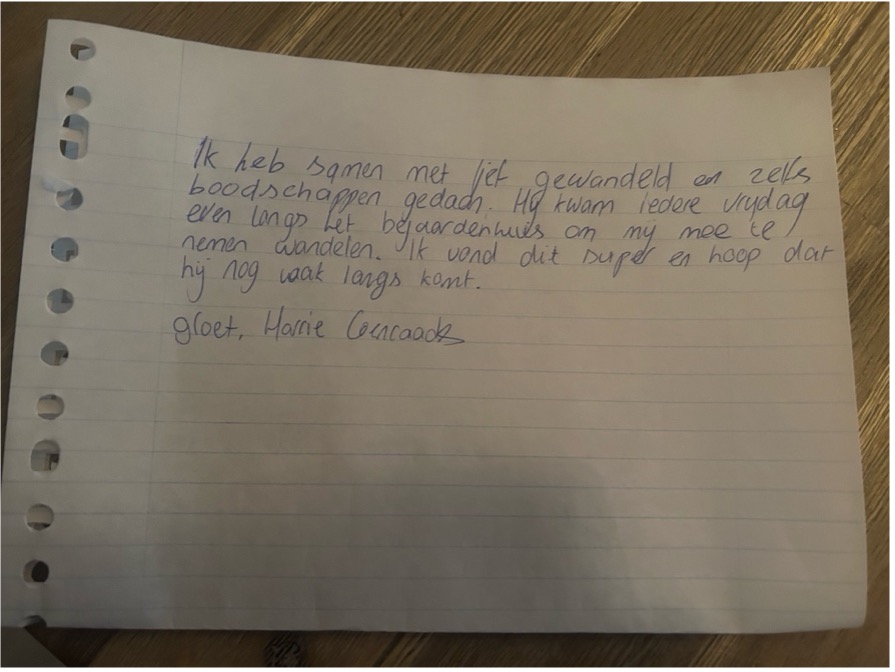 Ik heb samen met gewandeld en zelfs
boodschappen gedaan. Hij kwam iedere vrijdag
even langs het bejaardenhuis om mij mee te
nemen wandelen. Ik vond dit super en hoop dat
hij nog vaak langs komt.
groet, Harrie